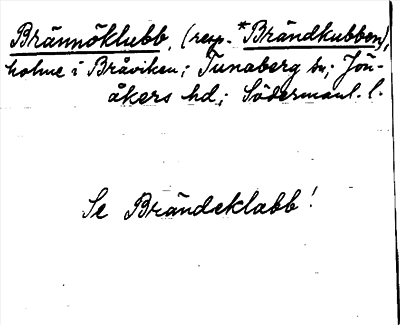 Brännöklubb, (resp. *Brändkubben),
holme i Bråviken; Tunaberg sn; Jön-
åkers hd; Södermanl. l.
Se Brändeklabb!